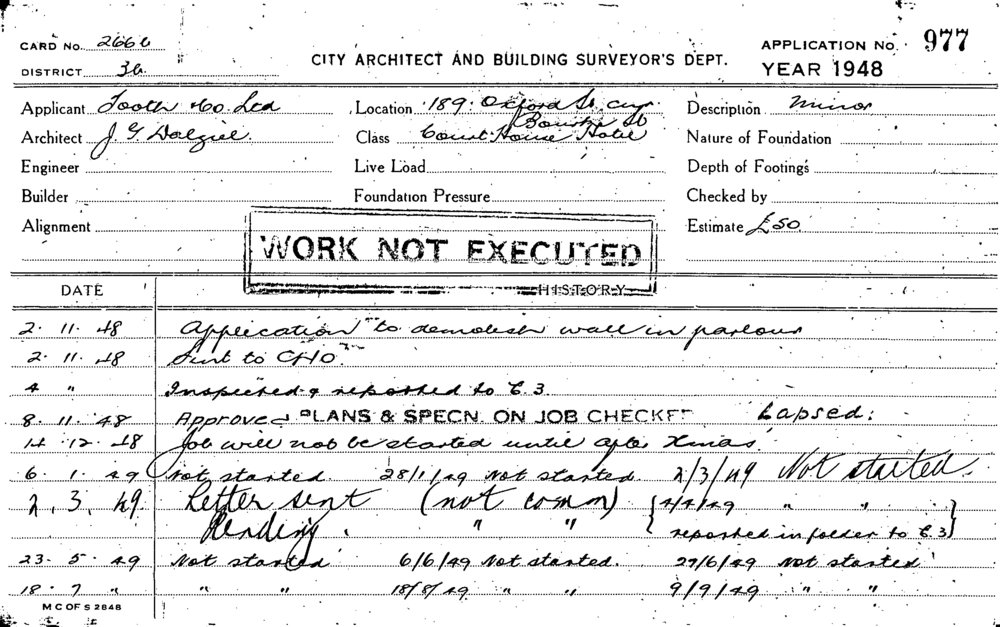 CARD No. 2666
CITY ARCHITECT AND BUILDING SURVEYOR'S DEPT.
APPLICATION No. 977
DISTRICT 3a
YEAR 1948
Applicant Tooth & Co. Ltd Location 189 Oxford St cnr Description Minor
Bourke St
Architect J. G. Dalziel. Class Court House Hotel Nature of Foundation
Engineer Live Load Depth of Footings
Builder Foundation Pressure Checked by
Alignment Estimate £50
WORK NOT EXECUTED
DATE HISTORY
2. 11. 48 Application to demolish wall in parlour
2. 11. 48 Sent to CHO
4 " Inspected & reported to C.3
8. 11. 48 Approved PLANS & SPECN. ON JOB CHECKED Lapsed.
14. 12. 48 Job will not be started until after Xmas
6. 1. 49 Not started. 28/1/49 Not started. 2/3/49 Not started.
2. 3. 49 Letter sent (not comm) {4/4/49 " "
Pending. " " reported in folder to C.3}
23. 5. 49 Not started 6/6/49 Not started. 27/6/49 Not started
18. 7 " " " 18/8/49 " " 9/9/49 " "
M C OF S 2848